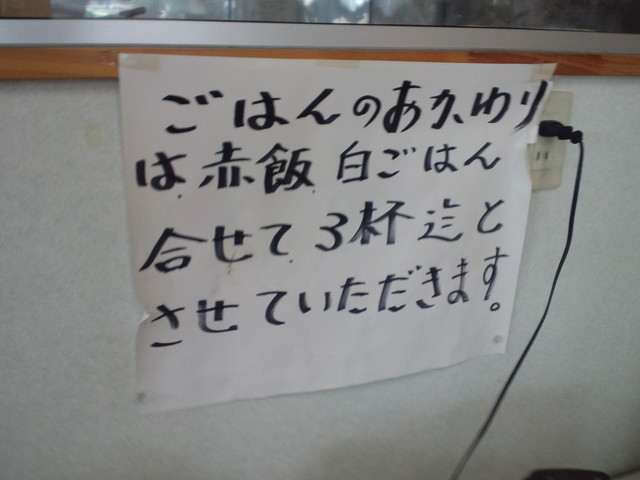 ごはんのおかわり
は赤飯 白ごはん
合せて3杯迄と
させていただきます。